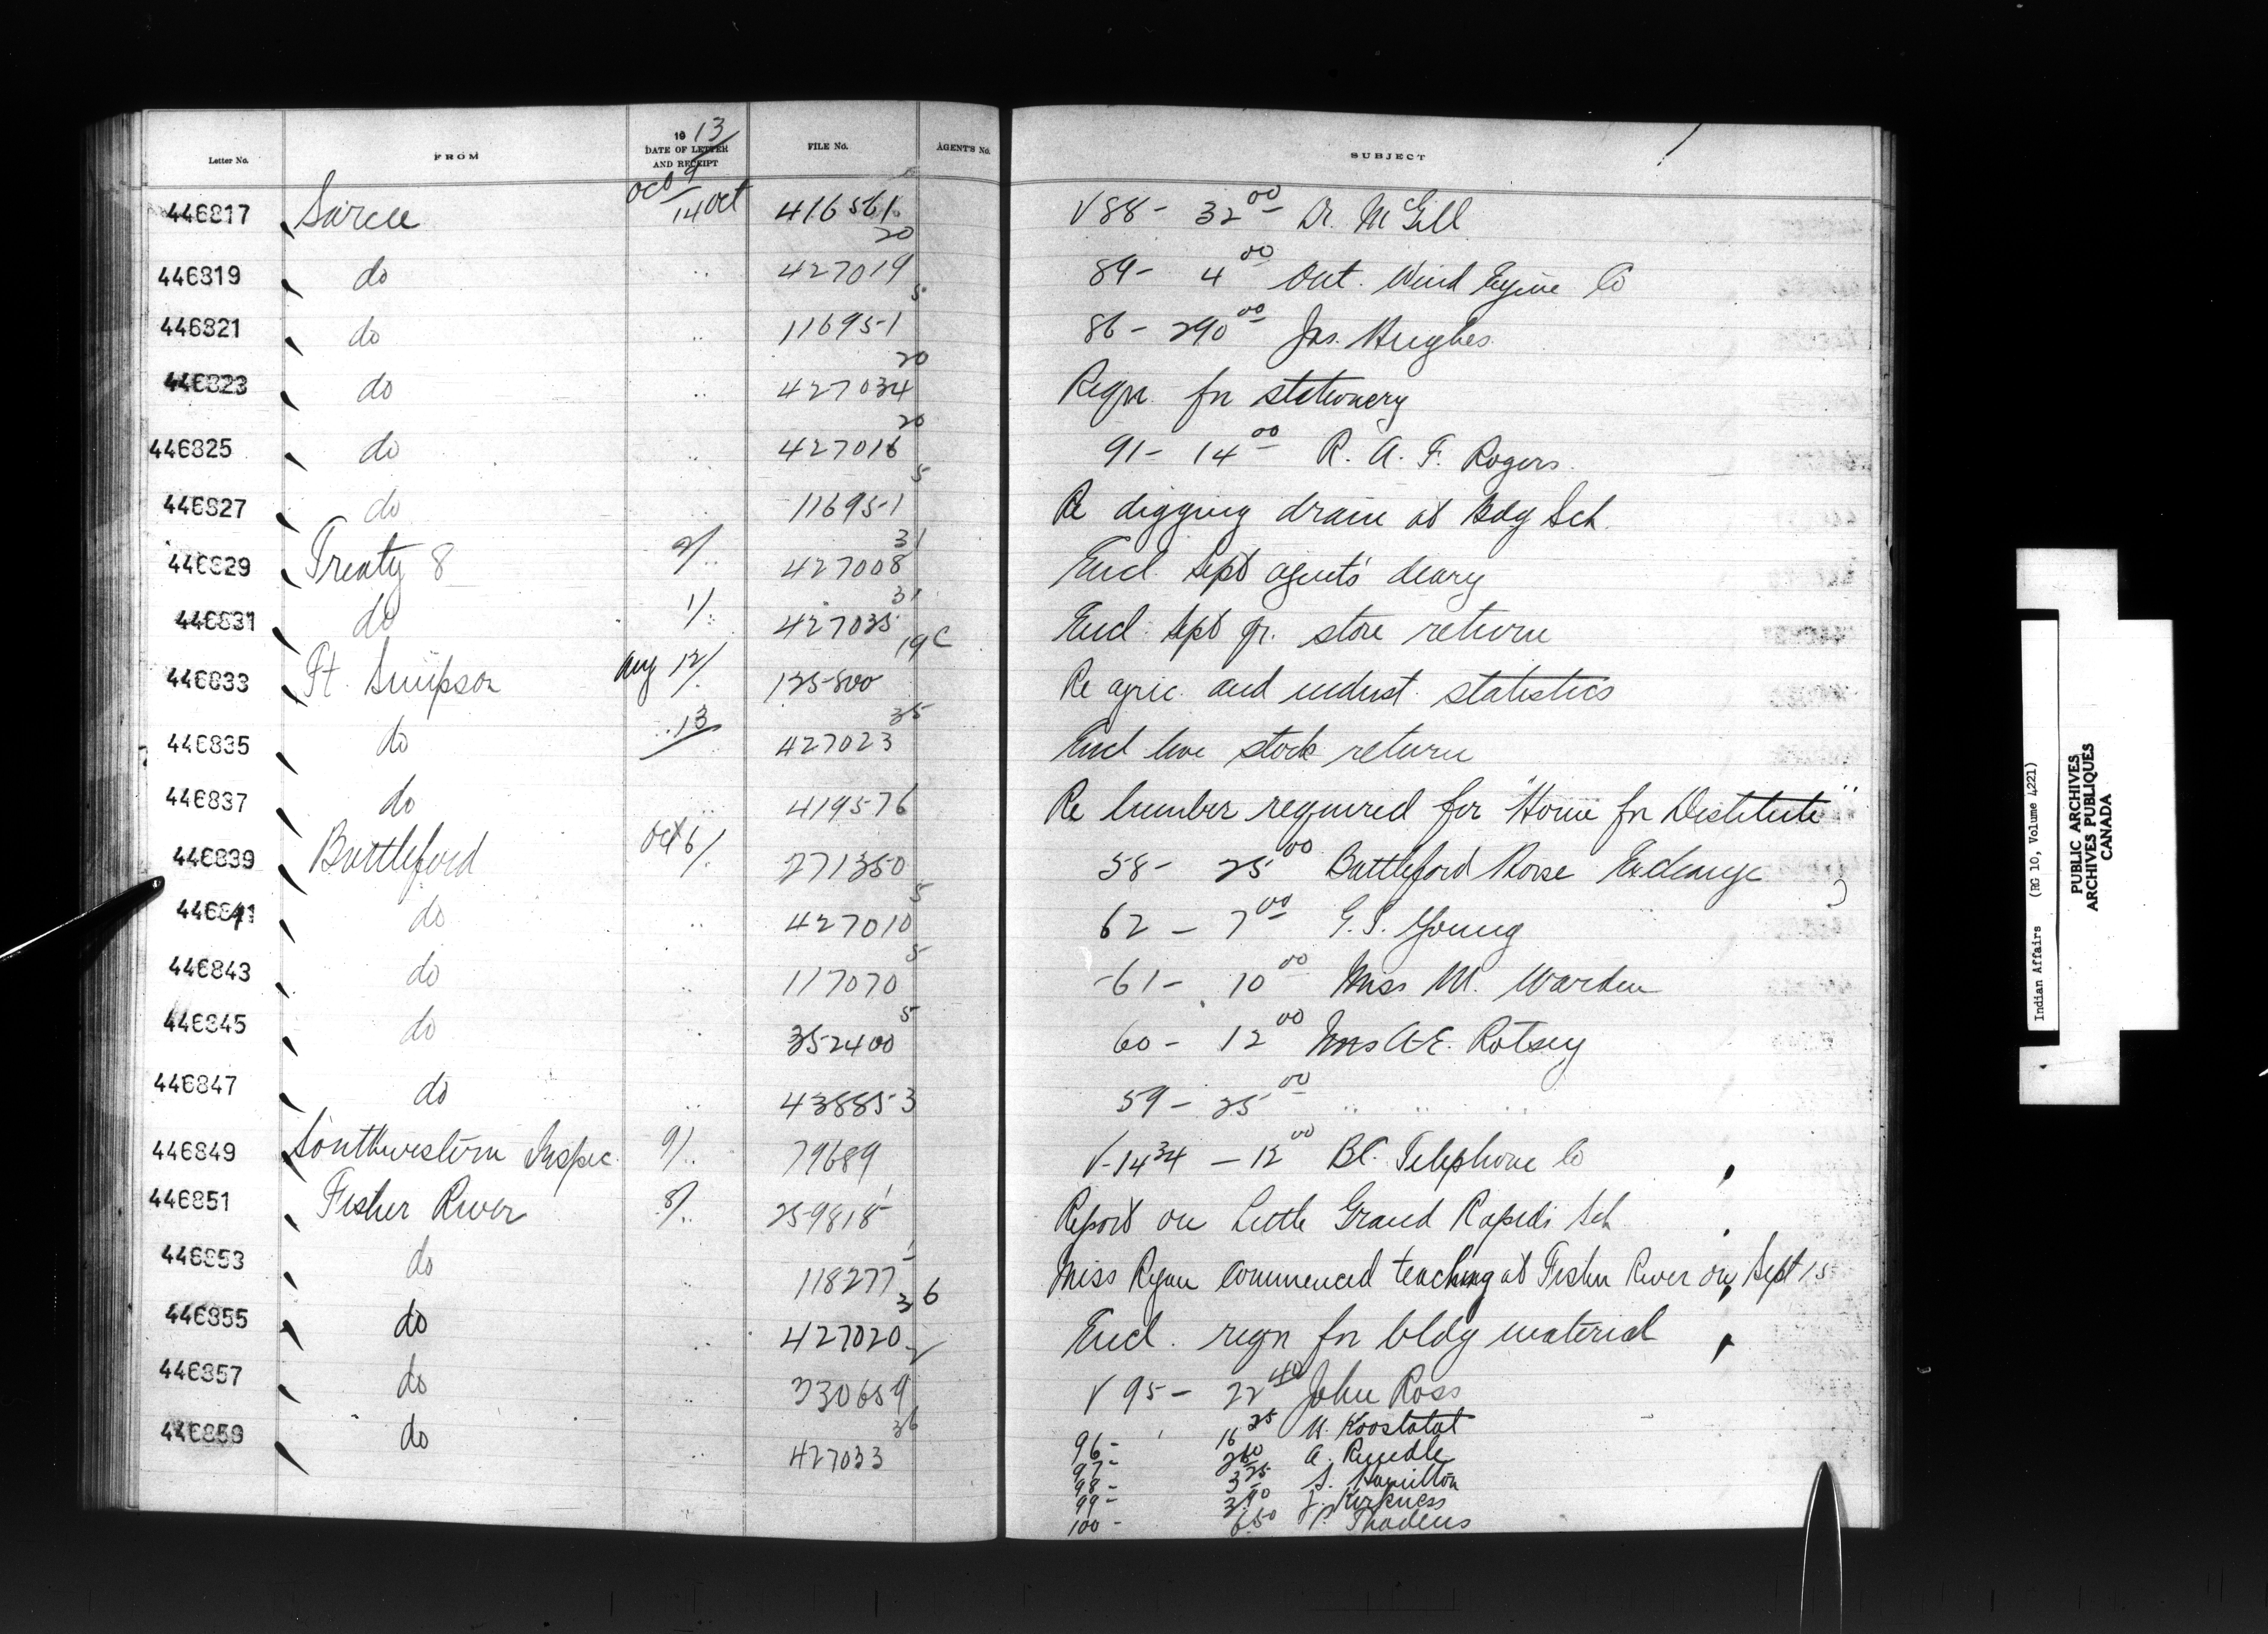 Letter No. FROM 1913 DATE OF LETTER AND RECEIPT FILE No. AGENT'S No. SUBJECT
446817 Sarcee Oct 9 14 Oct 416561 5 V 88 - 32 00 Dr. McGill
446819 do .. 427019 20 89 - 4 00 Ont. Wind Engine Co
446821 do .. 116951 5 86 - 290 00 Jas. Hughes
446823 do .. 427034 20 Reqn. for stationery
446825 do .. 427016 20 91 - 14 00 R. A. F. Rogers
446827 do .. 116951 5 Re digging drain at Bdg Sch.
446829 Treaty 8 2/.. 427008 31 Encl. Sept agent's diary
446831 do 1/.. 427035 31 Encl. Sept qr. store return
446833 Ft. Simpson Aug 12/. 135800 19C Re agric. and indust. statistics
446835 do .. 13 427023 35 Encl live stock return
446837 do .. 419576 Re lumber required for "Home for Destitute"
446839 Battleford Oct 6/. 271350 58 - 25 00 Battleford Horse Exchange
446841 do .. 427010 5 62 - 7 00 G. S. Young
446843 do .. 117070 5 61 - 10 00 Miss M. Warden
446845 do .. 352400 5 60 - 12 00 Mrs A. E. Rotsey
446847 do .. 438853 59 - 25 00 .. .. ..
446849 Southwestern Inspec. 9/.. 79689 V-1434 - 12 00 B.C. Telephone Co
446851 Fisher River 8/.. 259818 1 Report on Little Grand Rapids Sch
446853 do .. 118277 1 Miss Ryan commenced teaching at Fisher River on Sept 15
446855 do .. 427020 36 Encl. reqn for bldg material
446857 do .. 330659 2 V 95 - 22 40 John Ross
446859 do .. 427033 36 96 - 16 25 W. Koostatat
97 - 2 60 A. Rundle
98 - 3 25 S. Hamilton
99 - 3 90 J. Kirkness
100 - 6 50 P. Thadeus
Indian Affairs (RG 10, Volume 4221)
PUBLIC ARCHIVES
ARCHIVES PUBLIQUES
CANADA